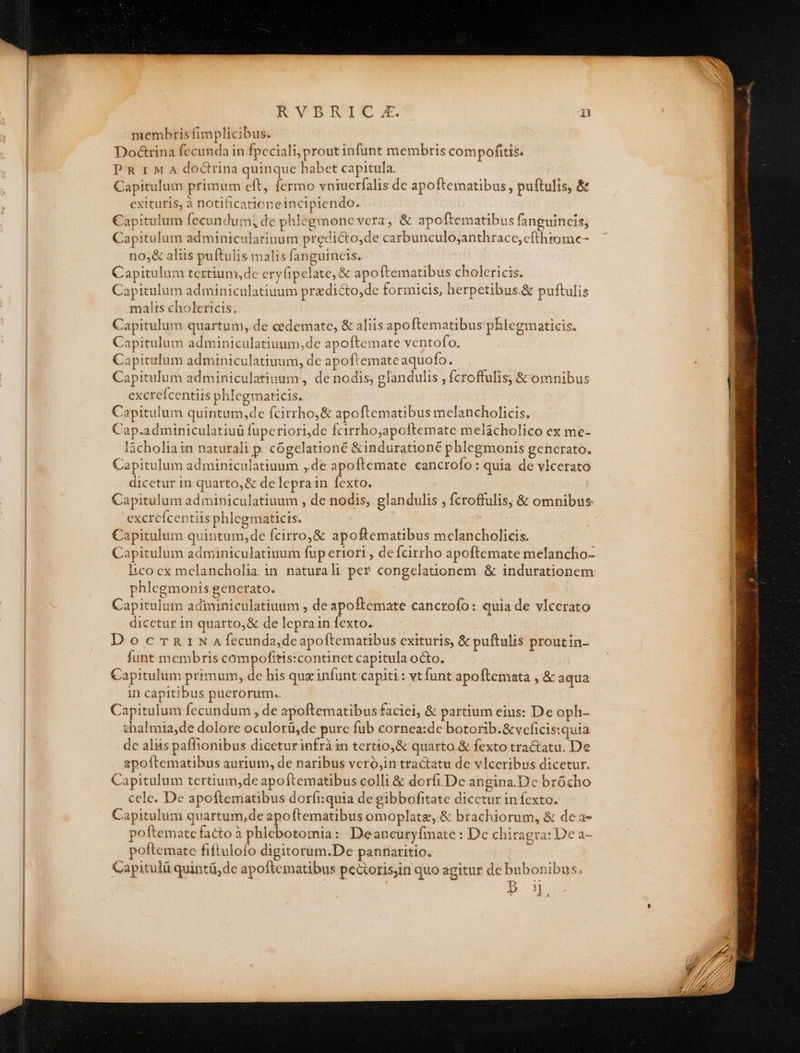 RVBRICÆ. 11
membris ſimplicibus.
Doctrina ſecunda in ſpeciali, prout inſunt membris compoſitis.
PRIMA doctrina quinque habet capitula.
Capitulum primum eſt, ſermo vniuerſalis de apoſtematibus, puſtulis, &
exituris, à notificatione incipiendo.
Capitulum ſecundum, de phlegmone vera, & apoſtematibus ſanguineis,
Capitulum adminiculatiuum predicto, de carbunculo, anthrace, eſthiome-
no, & aliis puſtulis malis ſanguineis.
Capitulum tertium, de eryſipelate, & apoſtematibus cholericis.
Capitulum adminiculatiuum prædicto, de formicis, herpetibus & puſtulis
malis cholericis.
Capitulum quartum, de œdemate, & aliis apoſtematibus phlegmaticis.
Capitulum adminiculatiuum, de apoſtemate ventoſo.
Capitulum adminiculatiuum, de apoſtemate aquoſo.
Capitulum adminiculatiuum, de nodis, glandulis, ſcroffulis, & omnibus
excreſcentiis phlegmaticis.
Capitulum quintum, de ſcirrho, & apoſtematibus melancholicis.
Cap. adminiculatiuū ſuperiori, de ſcirrho, apoſtemate melācholico ex me-
lācholia in naturali p. cōgelationé & indurationé phlegmonis generato.
Capitulum adminiculatiuum, de apoſtemate cancroſo: quia de vlcerato
dicetur in quarto, & de lepra in ſexto.
Capitulum adminiculatiuum, de nodis, glandulis, ſcroffulis, & omnibus
excreſcentiis phlegmaticis.
Capitulum quintum, de ſcirro, & apoſtematibus melancholicis.
Capitulum adminiculatiuum ſuperiori, de ſcirrho apoſtemate melancho-
lico ex melancholia in naturali per congelationem & indurationem
phlegmonis generato.
Capitulum adminiculatiuum, de apoſtemate cancroſo: quia de vlcerato
dicetur in quarto, & de lepra in ſexto.
DOCTRINA ſecunda, de apoſtematibus exituris, & puſtulis prout in-
ſunt membris compoſitis: continet capitula octo.
Capitulum primum, de his quæ inſunt capiti: vt ſunt apoſtemata, & aqua
in capitibus puerorum.
Capitulum ſecundum, de apoſtematibus faciei, & partium eius: De oph-
thalmia, de dolore oculorū, de pure ſub cornea: de botorib. & veſicis: quia
de aliis paſſionibus dicetur infrà in tertio, & quarto & ſexto tractatu. De
apoſtematibus aurium, de naribus verò, in tractatu de vlceribus dicetur.
Capitulum tertium, de apoſtematibus colli & dorſi. De angina. De brócho
cele. De apoſtematibus dorſi: quia de gibboſitate dicetur in ſexto.
Capitulum quartum, de apoſtematibus omoplatæ, & brachiorum, & de a-
poſtemate facto à phlebotomia: De aneuryſmate: De chiragra: De a-
poſtemate fiſtuloſo digitorum. De pannaritio.
Capitulū quintū, de apoſtematibus pectoris, in quo agitur de bubonibus.
B ij.